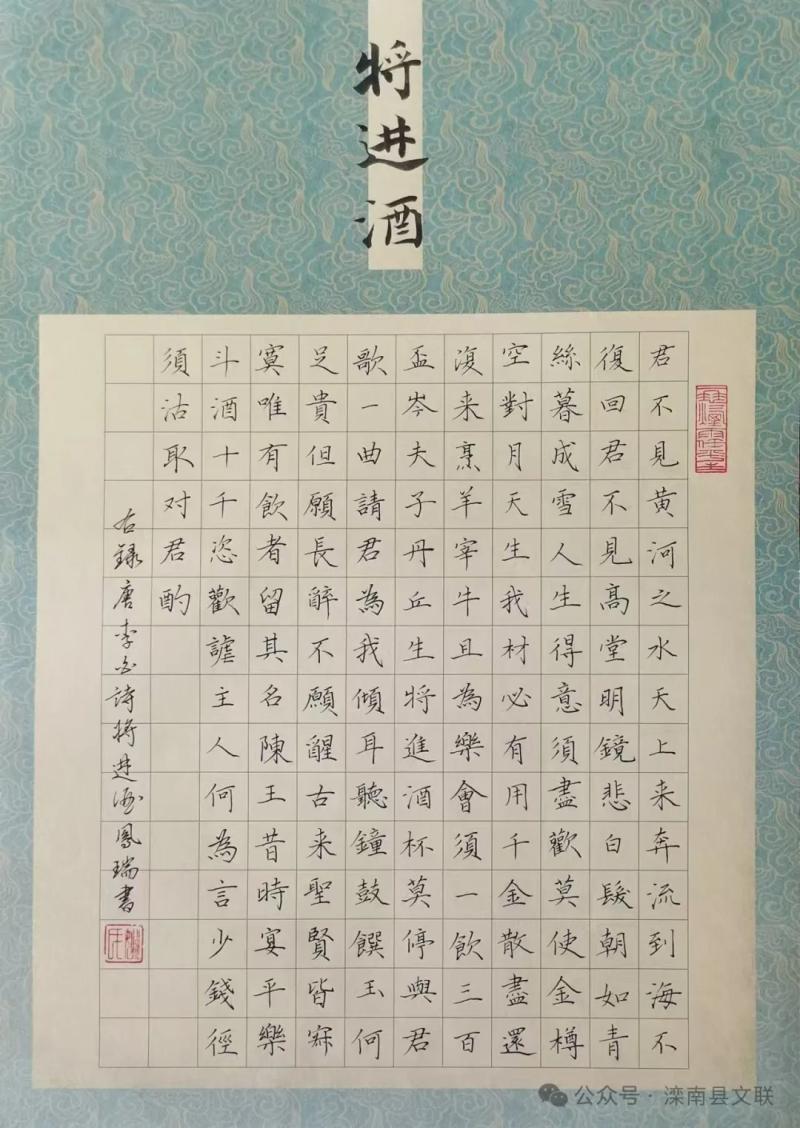 将进酒
君不見黄河之水天上来奔流到海不
復回君不見高堂明鏡悲白髮朝如青
絲暮成雪人生得意須盡歡莫使金樽
空對月天生我材必有用千金散盡還
復来烹羊宰牛且為樂會須一飲三百
盃岑夫子丹丘生将進酒杯莫停與君
歌一曲請君為我傾耳聽鐘鼓饌玉何
足貴但願長醉不願醒古来聖賢皆寂
寞唯有飲者留其名陳王昔時宴平樂
斗酒十千恣歡謔主人何為言少錢徑
須沽取对君酌
右録唐李白詩将進酒鳳瑞書
公众号·滦南县文联